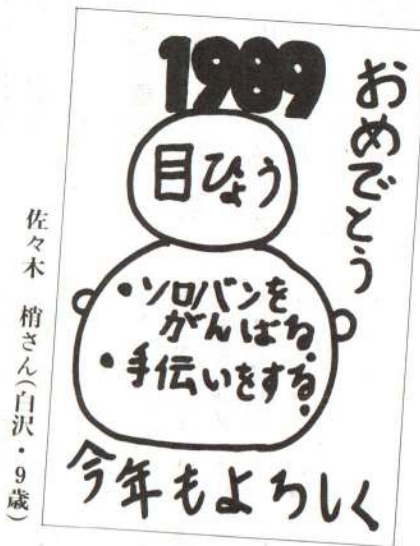 1989
おめでとう
目ひょう
・ソロバンを
がんばる。
・手伝いをする。
今年もよろしく
佐々木 梢さん(白沢・9歳)